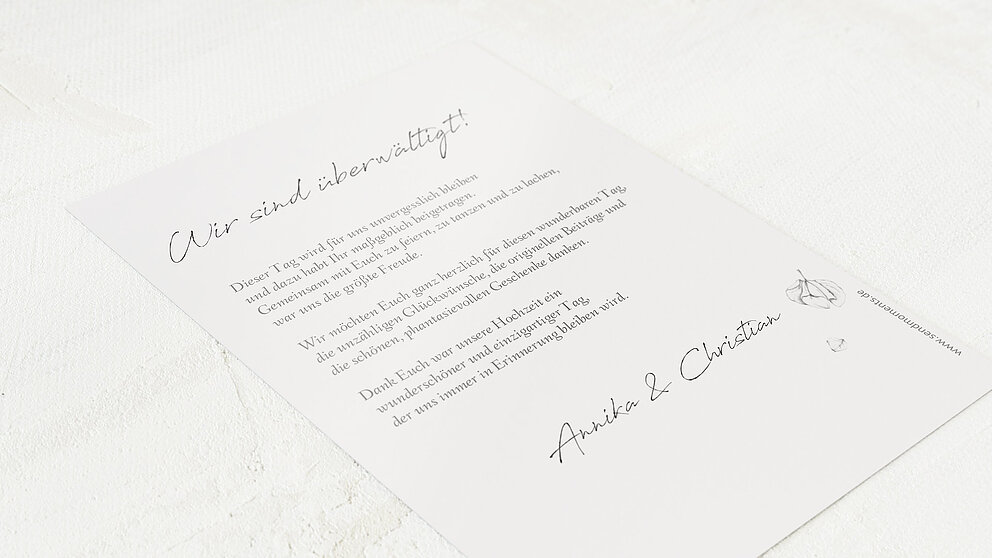 Wir sind überwältigt!
Dieser Tag wird für uns unvergesslich bleiben
und dazu habt Ihr maßgeblich beigetragen.
Gemeinsam mit Euch zu feiern, zu tanzen und zu lachen,
war uns die größte Freude.
Wir möchten Euch ganz herzlich für diesen wunderbaren Tag,
die unzähligen Glückwünsche, die originellen Beiträge und
die schönen, phantasievollen Geschenke danken.
Dank Euch war unsere Hochzeit ein
wunderschöner und einzigartiger Tag,
der uns immer in Erinnerung bleiben wird.
Annika & Christian
www.sendmoments.de